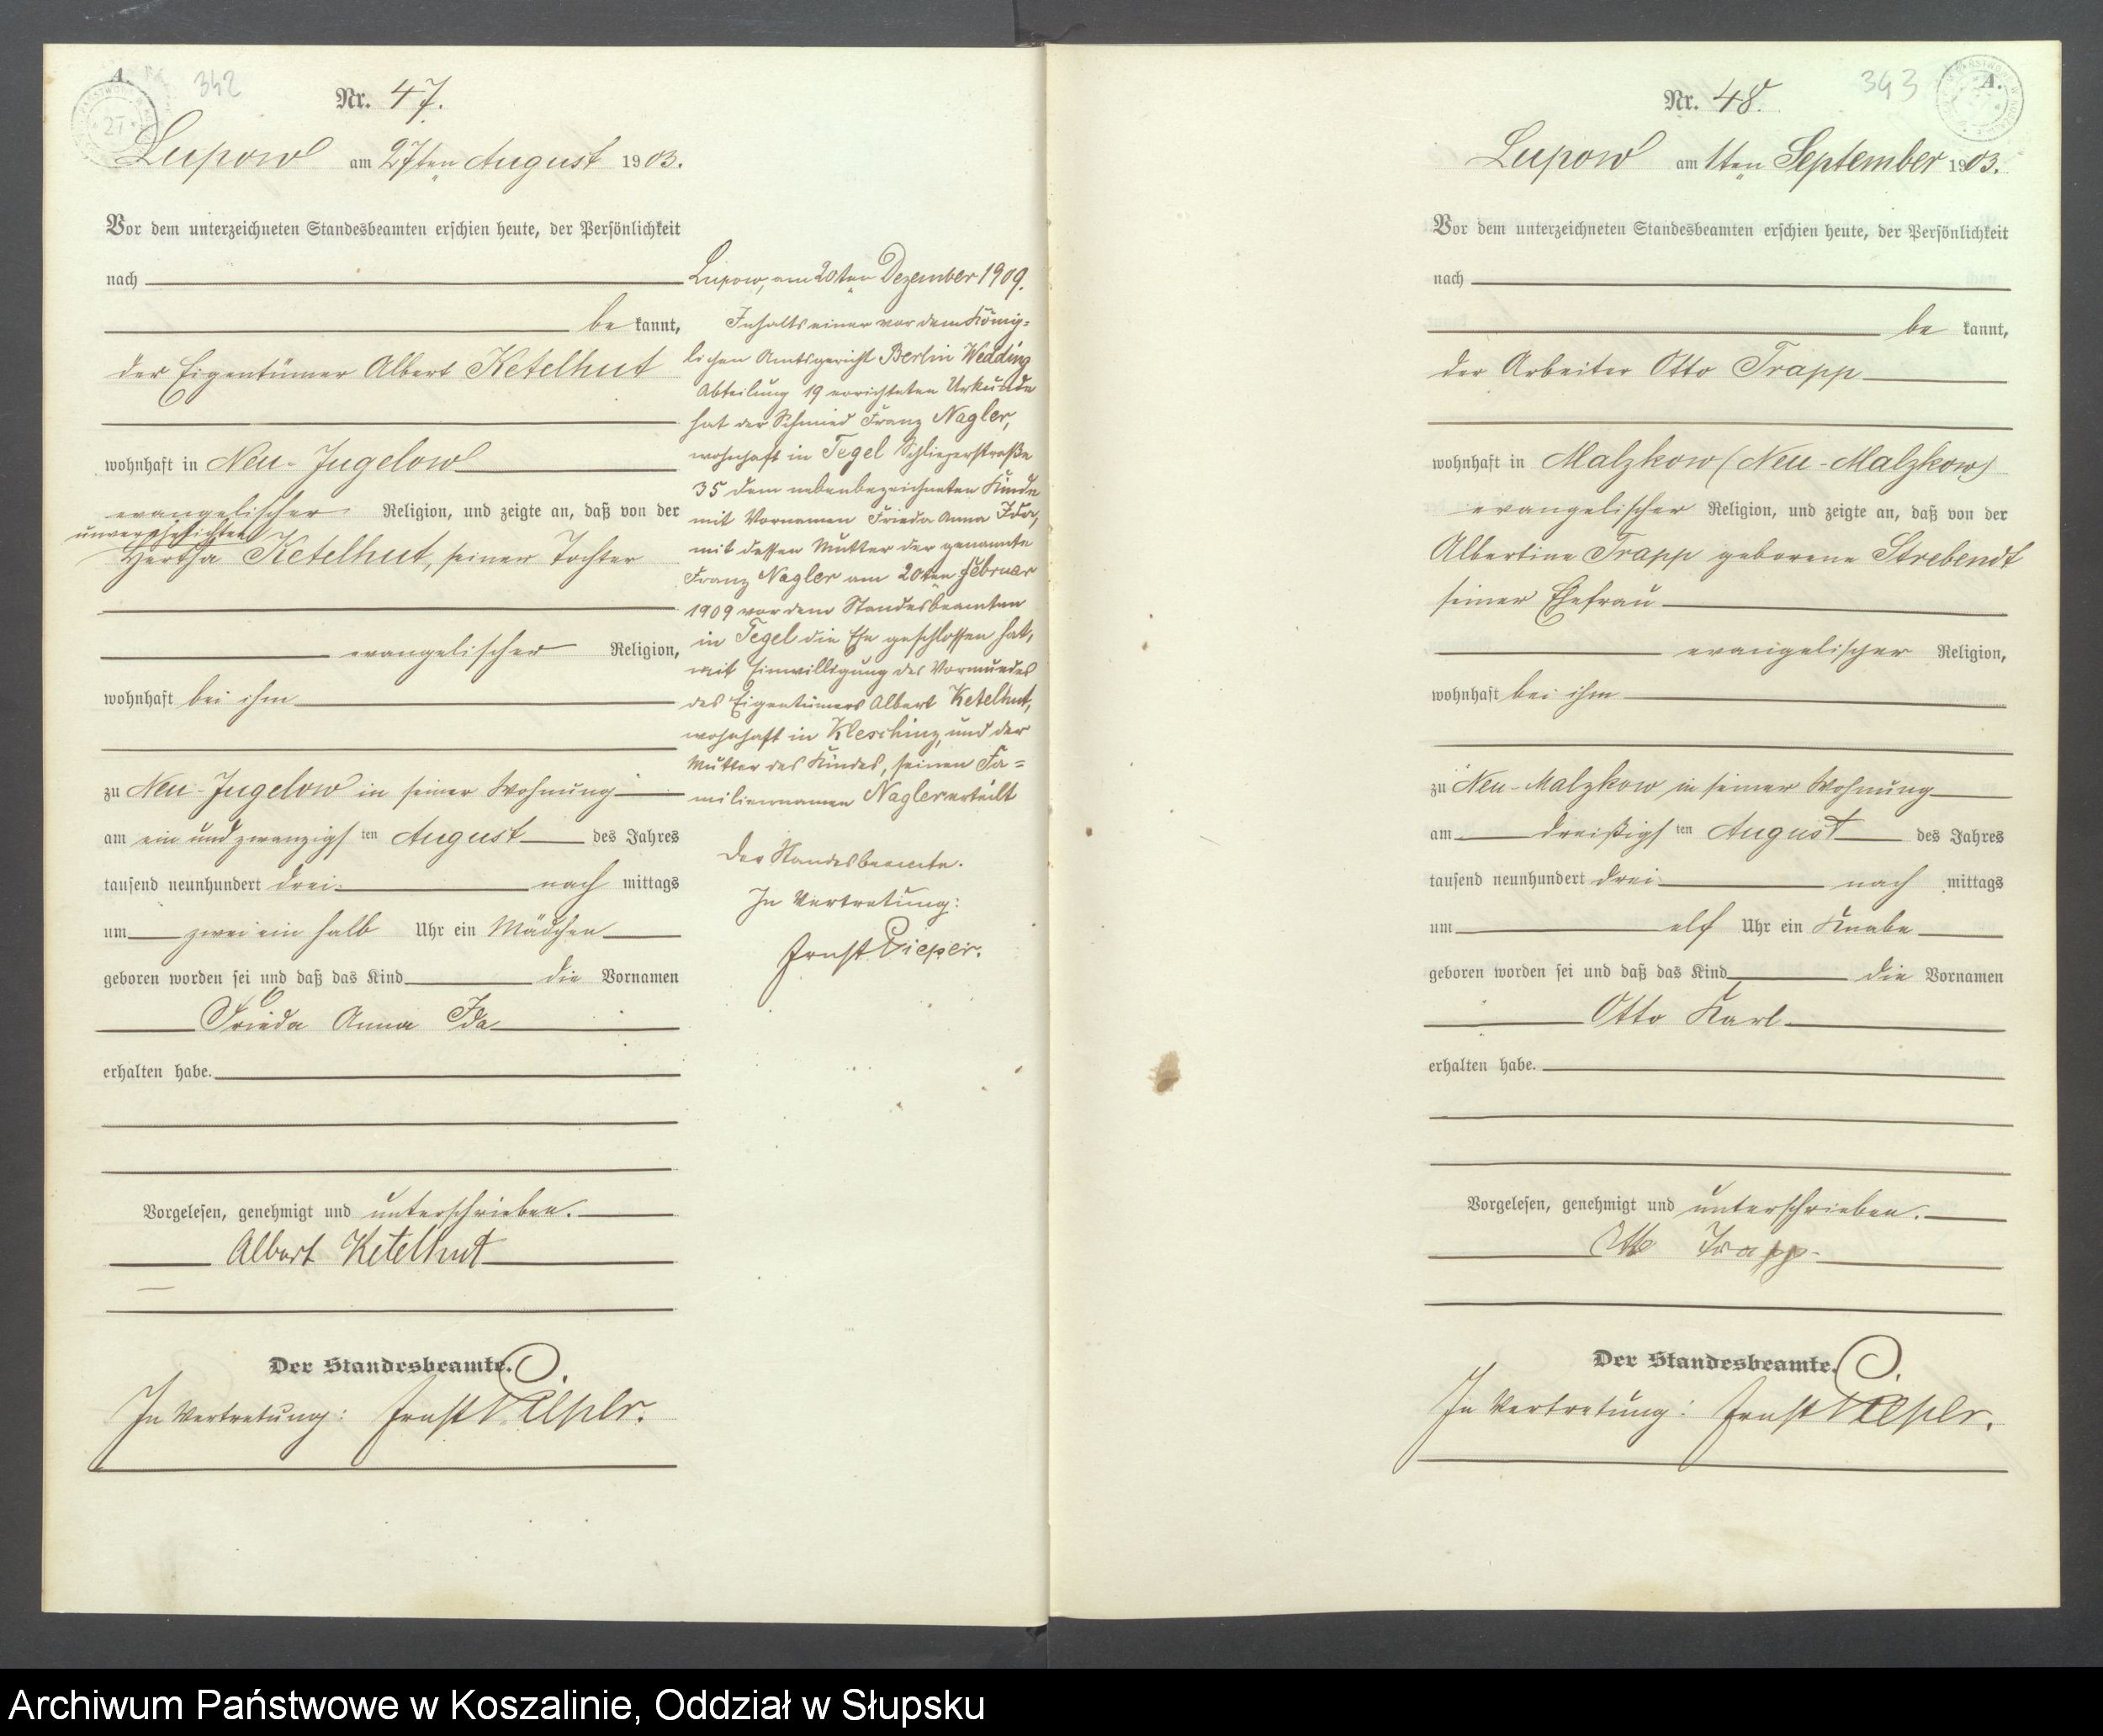 A.
342
Nr. 47.
Lupow am 27ten August 1903.
Vor dem unterzeichneten Standesbeamten erschien heute, der Persönlichkeit
nach
be kannt,
der Eigentümer Albert Ketelhut
wohnhaft in Neu-Jugelow
evangelischer Religion, und zeigte an, daß von der
unverehelichten
Hertha Ketelhut, seiner Tochter
evangelischer Religion,
wohnhaft bei ihm
zu Neu-Jugelow in seiner Wohnung
am ein und zwanzigsten August des Jahres
tausend neunhundert drei nach mittags
um zwei ein halb Uhr ein Mädchen
geboren worden sei und daß das Kind die Vornamen
Frieda Anna Ida
erhalten habe.
Vorgelesen, genehmigt und unterschrieben.
Albert Ketelhut
Der Standesbeamte.
In Vertretung: Ernst Pieper.
Lupow, am 20ten Dezember 1909.
Inhalts einer vor dem König-
lichen Amtsgericht Berlin Wedding
Abteilung 19 errichteten Urkunde
hat der Schmied Franz Nagler,
wohnhaft in Tegel Schlieperstraße
35 dem nebenbezeichneten Kinde
mit Vornamen Frieda Anna Ida,
mit dessen Mutter der genannte
Franz Nagler am 20ten Februar
1909 vor dem Standesbeamten
in Tegel die Ehe geschlossen hat,
mit Einwilligung des Vormundes
des Eigentümers Albert Ketelhut,
wohnhaft in Kleschinz, und der
Mutter des Kindes, seinen Fa-
miliennamen Nagler erteilt
Der Standesbeamte.
In Vertretung:
Ernst Pieper.
343
A.
Nr. 48.
Lupow am 1ten September 1903.
Vor dem unterzeichneten Standesbeamten erschien heute, der Persönlichkeit
nach
be kannt,
der Arbeiter Otto Trapp
wohnhaft in Malzkow (Neu-Malzkow)
evangelischer Religion, und zeigte an, daß von der
Albertine Trapp geborene Strebendt
seiner Ehefrau
evangelischer Religion,
wohnhaft bei ihm
zu Neu-Malzkow in seiner Wohnung
am dreißigsten August des Jahres
tausend neunhundert drei nach mittags
um elf Uhr ein Knabe
geboren worden sei und daß das Kind die Vornamen
Otto Karl
erhalten habe.
Vorgelesen, genehmigt und unterschrieben.
Otto Trapp
Der Standesbeamte.
In Vertretung: Ernst Pieper.
Archiwum Państwowe w Koszalinie, Oddział w Słupsku